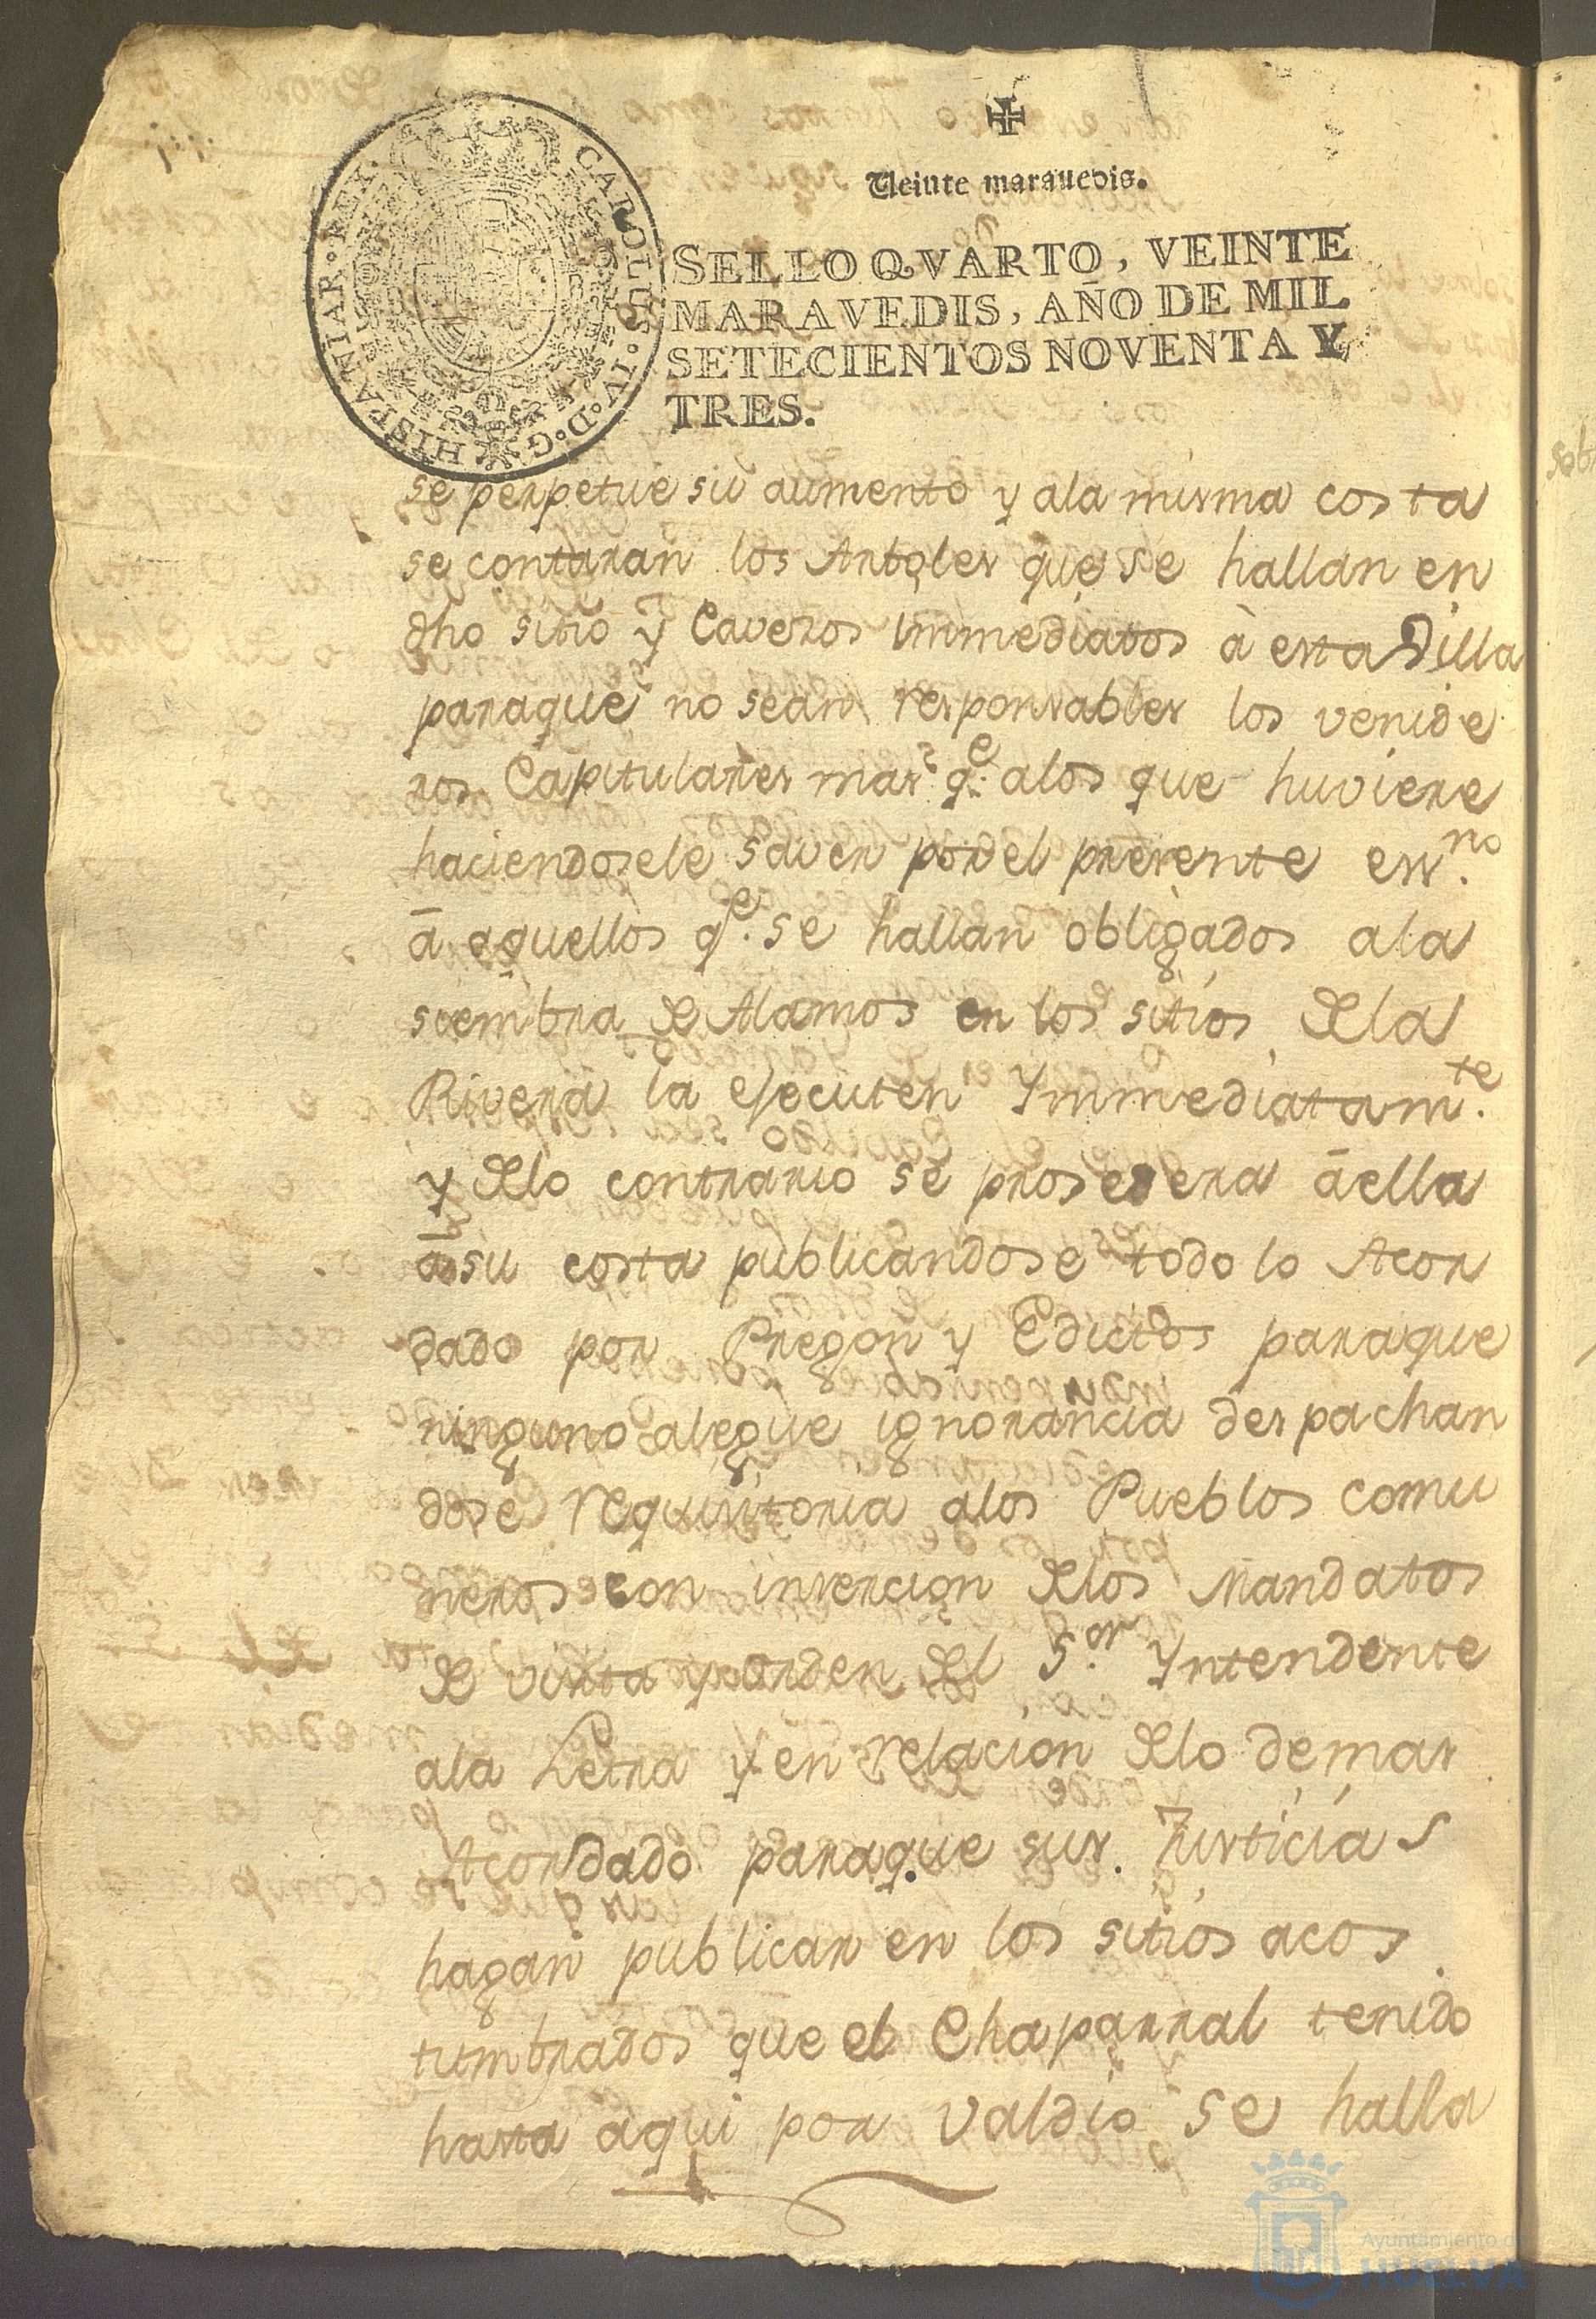 CAROLUS·IV·D·G·HISPANIAR·REX·
Veinte marauedis.
SELLO QVARTO, VEINTE
MARAVEDIS, AÑO DE MIL
SETECIENTOS NOVENTA Y
TRES.
se perpetue su aumento y ala misma costa
se contaran los Arboles que se hallan en
dho sitio y Caveros immediatos à esta Villa
paraque no sean responsables los venide
ros Capitulares mas q.e alos que huviere
haciendosele saver por el presente ess.no
ā aquellos q.e se hallan obligados ala
siembra de Alamos en los sitios dela
Rivera la ejecuten Ymmediatam.te
y delo contrario se prosedera āella
āsu costa publicandose todo lo Acor
dado por Pregon y Edictos paraque
ninguno alegue ignorancia despachan
dose requisitoria alos Pueblos comu
neros con insercion delos Mandatos
de visita y orden del S.or Yntendente
ala Letra y en relacion delo demas
Acordado paraque sus Justicias
hagan publicar en los sitios acos
tumbrados que el Chaparral tenido
hasta aqui por valdio se halla
Ayuntamiento de
HUELVA